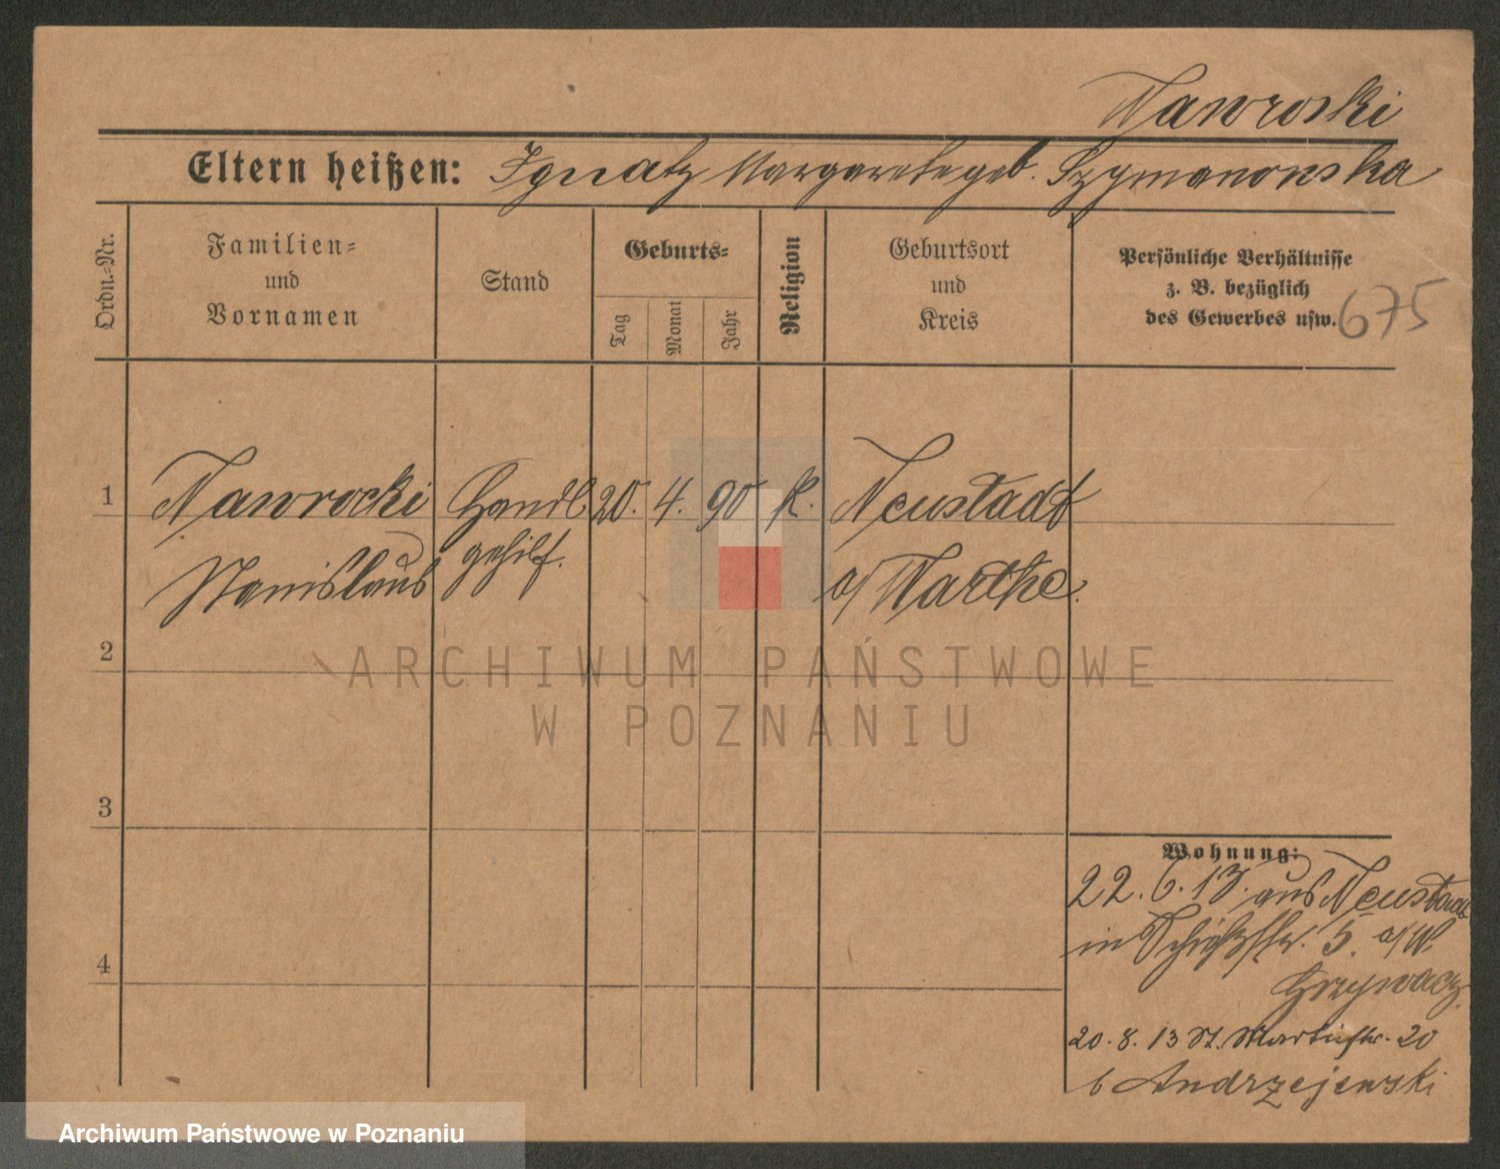 Nawroski
Eltern heißen: Ignatz Margarete geb. Szymanowska
Ordn.=Nr.
Familien=
und
Vornamen
Stand
Geburts=
Tag
Monat
Jahr
Religion
Geburtsort
und
Kreis
Persönliche Verhältnisse
z. B. bezüglich
des Gewerbes usw.
675
1 Nawrocki Handl 20. 4. 90 k. Neustadt
Stanislaus gehilf. a/Warthe.
2
3
4
Wohnung:
22. 6. 13. aus Neustadt
in Schießstr. 5. a/W.
Grzywacz.
20. 8. 13 St. Martinstr. 20
b Andrzejewski
ARCHIWUM PAŃSTWOWE
W POZNANIU
Archiwum Państwowe w Poznaniu